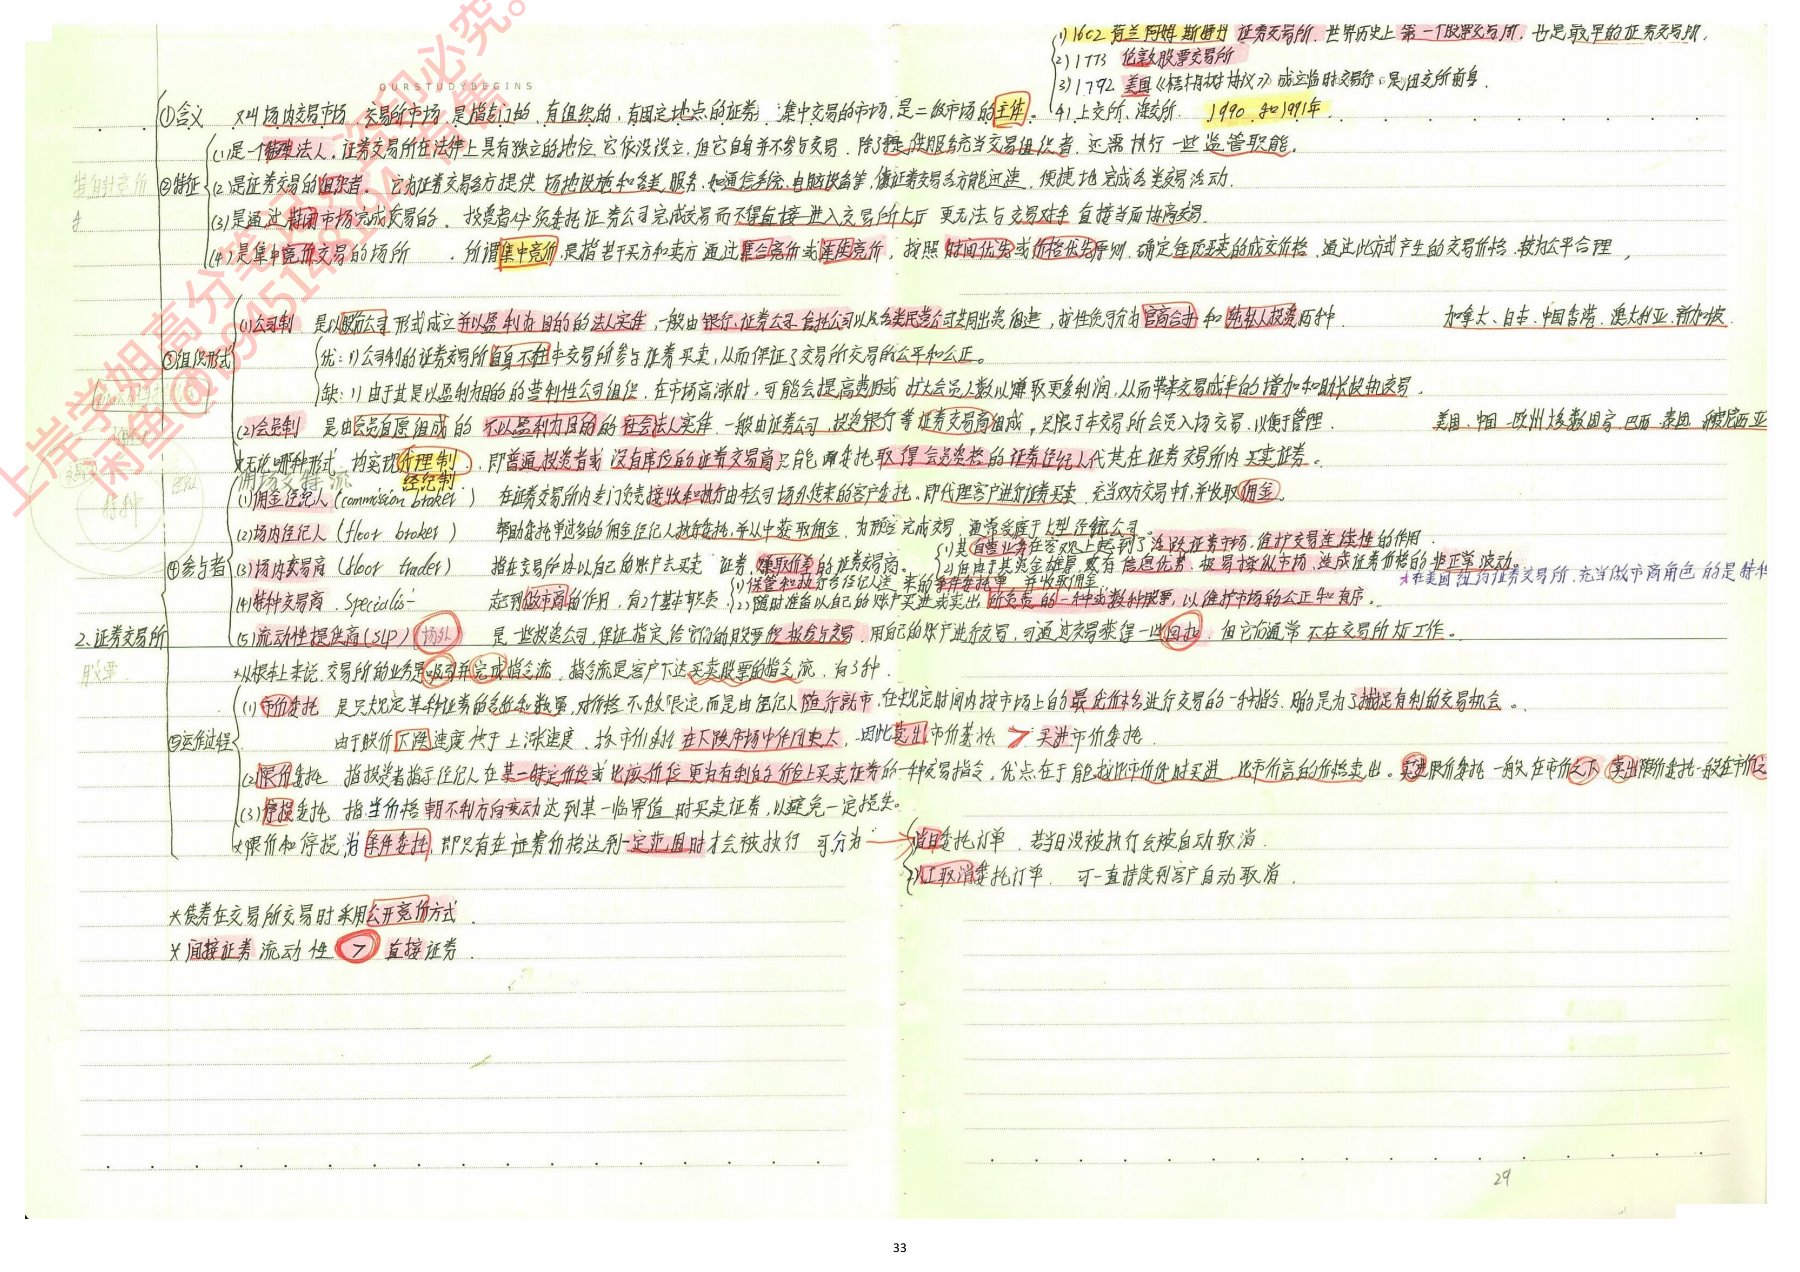 1) 1602 荷兰阿姆斯特丹证券交易所，世界历史上第一个股票交易所，也是最早的证券交易所，
2) 1773 伦敦股票交易所
3) 1792 美国《梧桐树协议》成立临时交易行，是纽交所前身
4) 上交所、深交所 1990 和 1991年
OURSTUDYBEGINS
①含义 又叫场内交易市场 交易所市场 是指专门的、有组织的，有固定地点的证券 集中交易的市场，是二级市场的主体。
②特征
(1)是一个 法人。证券交易所在法律上具有独立的地位，它依法设立，但它自身并不参与交易，除了提供服务充当交易组织者，还需执行一些监管职能。
(2)是证券交易的组织者。它为证券交易各方提供场地设施和各类服务，如通信系统、电脑设备等，使证券交易各方能迅速、便捷地完成各类交易活动。
(3)是通过 市场完成交易的。投资者必须委托证券公司完成交易而不得直接进入交易所大厅 更无法与交易对手直接当面协商交易。
(4)是集中竞价交易的场所。所谓集中竞价，是指若干买方和卖方通过集合竞价或连续竞价，按照时间优先或价格优先原则，确定每项买卖的成交价格，通过此方式产生的交易价格，较为公平合理，
③组织形式
(1)公司制 是以股份公司形式成立并以盈利为目的的法人实体，一般由银行、证券公司、信托公司以及各类民营公司共同出资组建，按性质可分为官商合办和纯私人投资两种。 加拿大、日本、中国香港、澳大利亚、新加坡
优：1)公司制的证券交易所自身不在本交易所参与证券买卖，从而保证了交易所交易的公平和公正。
缺：1)由于其是以盈利为目的的营利性公司组织，在市场高涨时，可能会提高费用或扩大会员人数以赚取更多利润，从而带来交易成本的增加和助长投机交易
(2)会员制 是由会员自愿组成的不以盈利为目的的社会法人实体，一般由证券公司、投资银行等证券交易商组成，只限于本交易所会员入场交易，以便于管理。 美国、中国、欧州大多数国家、巴西、泰国、印度尼西亚
*无论哪种形式，均实现代理制，即普通投资者或没有席位的证券交易商只能委托取得会员资格的证券经纪人代其在证券交易所内买卖证券。
佣场交特流 经纪制
④参与者
(1)佣金经纪人 (commission broker) 在证券交易所内专门负责接收和执行由本公司场外传来的客户委托。即代理客户进行证券买卖，充当双方交易中介，并收取佣金。
(2)场内经纪人 (floor broker) 帮助委托单过多的佣金经纪人执行委托，并从中获取佣金，为顺利完成交易，通常受雇于大型经纪公司。
(3)场内交易商 (floor trader) 指在交易所内以自己的账户去买卖证券，赚取价差的证券交易商。
1)其自营业务在客观上起到了活跃证券市场，维护交易连续性的作用
2)但由于其资金雄厚，又有信息优势，极易操纵市场，造成证券价格的非正常波动。
(4)特种交易商 specialis 起到做市商的作用，有2个基本职责
(1)保管和执行各经纪人送来的条件委托单 并收取佣金
(2)随时准备以自己的账户买进或卖出所负责的一种或数种股票，以维护市场的公正和有序。
*在美国纽约证券交易所，充当做市商角色的是特种
2.证券交易所
(5)流动性提供商(SLP) 场外 是一些投资公司，保证指定给它们的股票积极参与交易，用自己的账户进行交易，可通过交易获得一些回扣，但它们通常不在交易所场工作。
股票
*从根本上来说，交易所的业务是吸引并完成指令流，指令流是客户下达买卖股票的指令流，有3种
⑤运作过程
(1)市价委托 是只规定某种证券的名称和数量，对价格不做限定，而是由经纪人随行就市，在规定时间内按市场上的最优价格进行交易的一种指令，目的是为了捕捉有利的交易机会。
由于股价下跌速度快于上涨速度，故市价委托在下跌市场中作用更大，因此卖出市价委托 > 买进市价委托
(2)限价委托 指投资者指示经纪人在某一特定价位或比该价位更为有利的价位上买卖证券的一种交易指令，优点在于能按比市价低时买进，比市价高的价格卖出。买进限价委托一般又在市价之下，卖出限价委托一般在市价之
(3)停损委托 指当价格朝不利方向变动达到某一临界值时买卖证券，以避免一定损失。
*限价和停损为条件委托，即只有在证券价格达到一定范围时才会被执行 可分为
当日委托订单 若当日没被执行会被自动取消
人工取消委托订单 可一直持续到客户自动取消
*债券在交易所交易时采用公开竞价方式
*间接证券流动性 > 直接证券
29
33